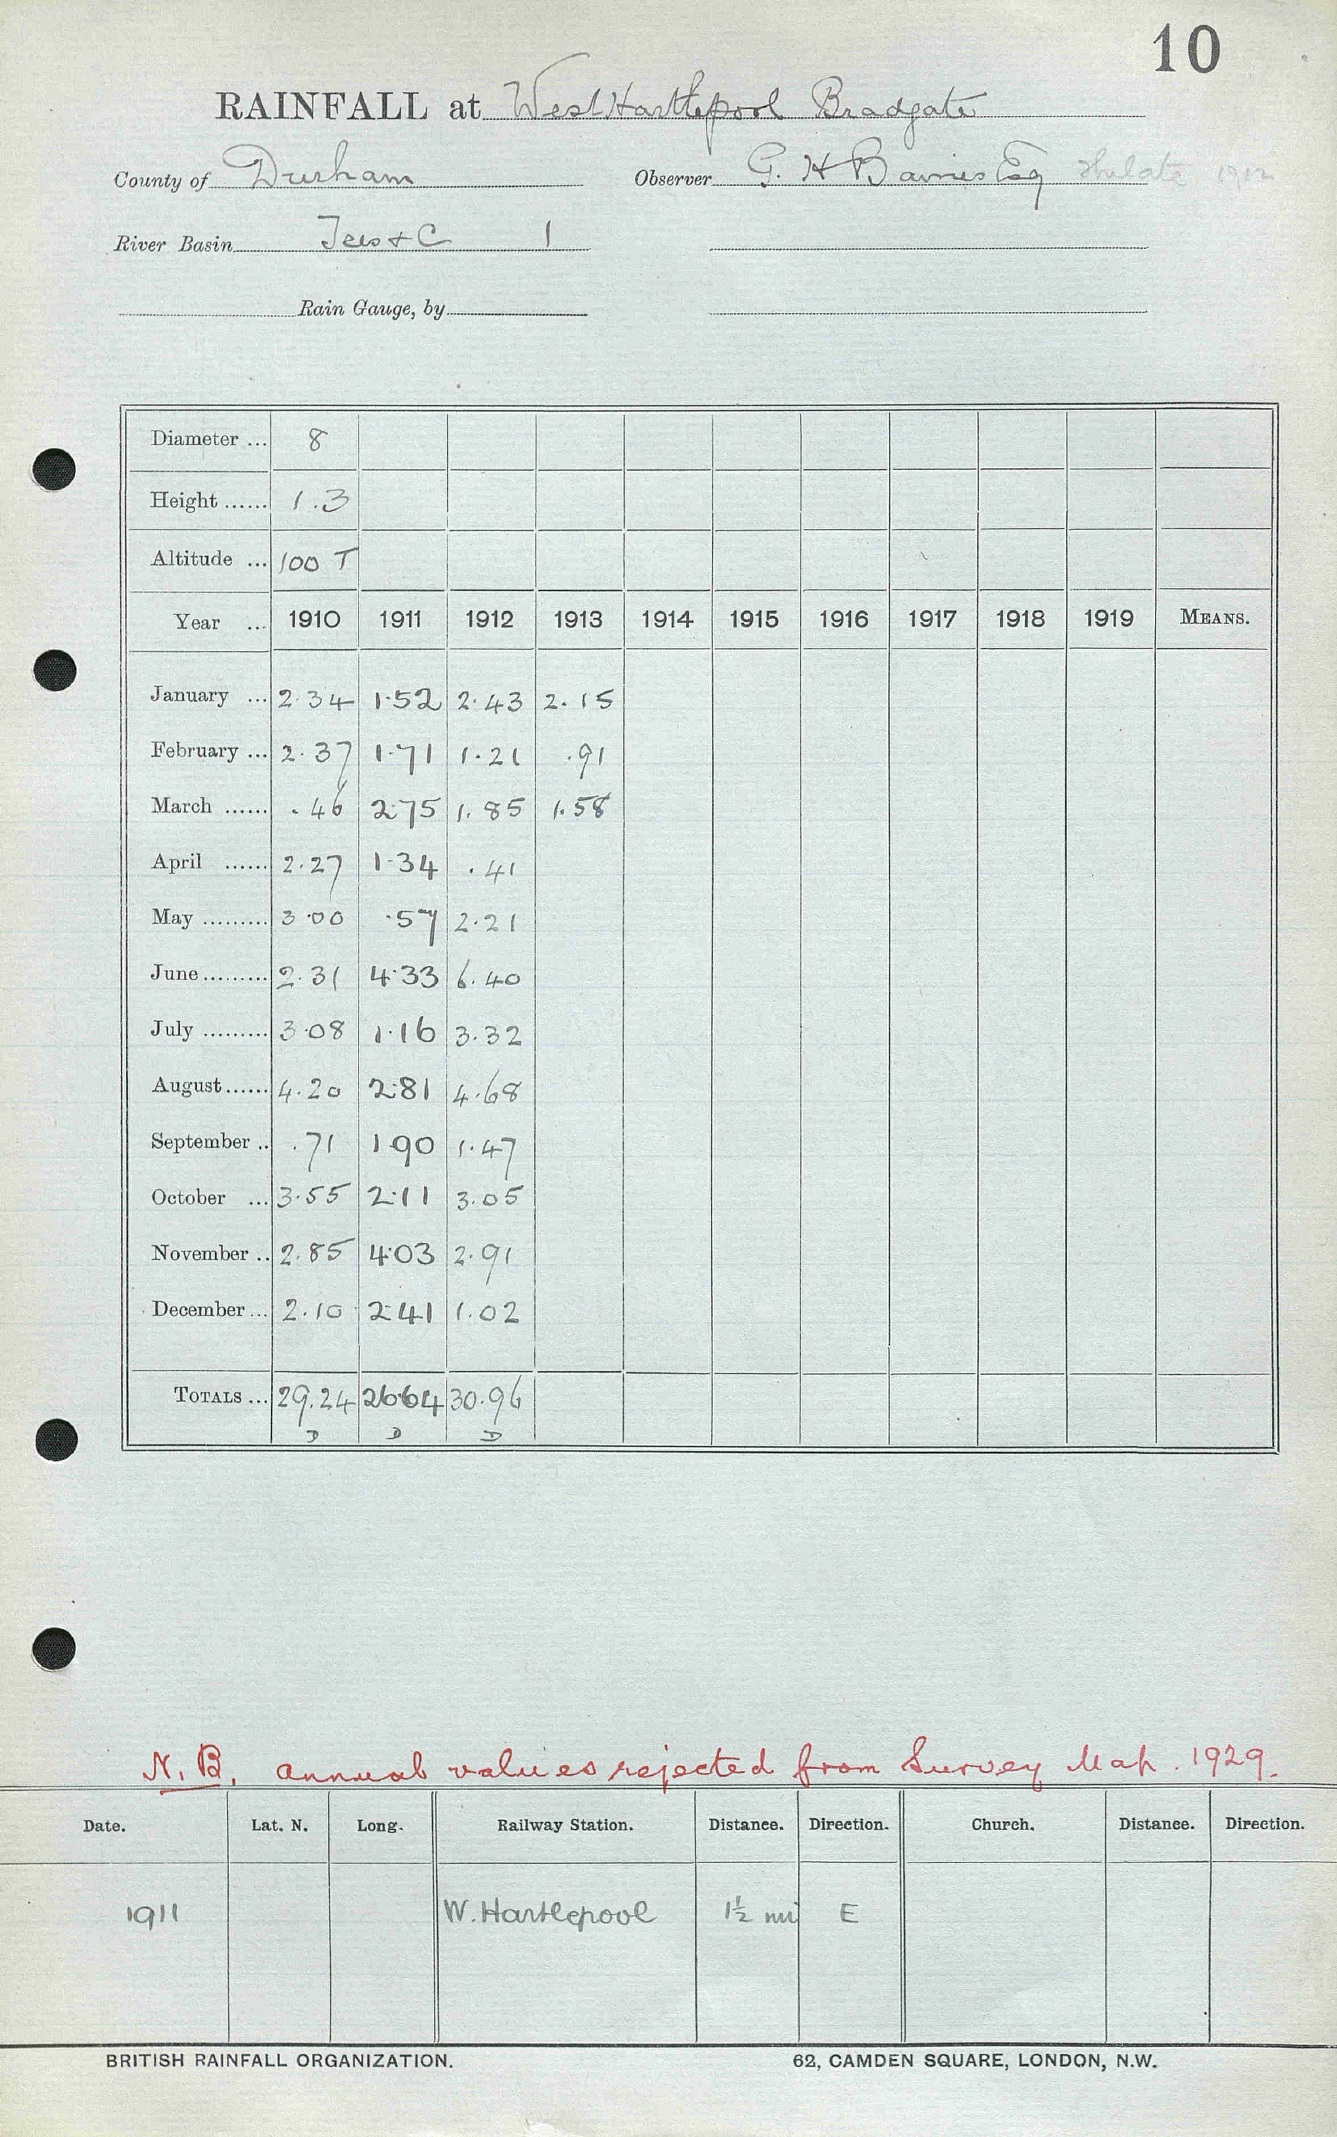 10
RAINFALL at West Hartlepool Bradgate
County of Durham Observer G. H Baines Esq 1912
River Basin Tees + C 1
Rain Gauge, by
Diameter ... 8
Height ...... 1.3
Altitude ... 100 T
Year ... 1910 1911 1912 1913 1914 1915 1916 1917 1918 1919 MEANS.
January ... 2.34 1.52 2.43 2.15
February ... 2.37 1.71 1.21 .91
March ...... .46 2.75 1.85 1.58
April ...... 2.27 1.34 .41
May ......... 3.00 .57 2.21
June ......... 2.31 4.33 6.40
July ......... 3.08 1.16 3.32
August ...... 4.20 2.81 4.68
September .. .71 1.90 1.47
October ... 3.55 2.11 3.05
November .. 2.85 4.03 2.91
December ... 2.10 2.41 1.02
TOTALS ... 29.24 26.64 30.96
D D D
N.B. annual values rejected from Survey Map. 1929.
Date. Lat. N. Long. Railway Station. Distance. Direction. Church. Distance. Direction.
1911 W. Hartlepool 1½ mi E
BRITISH RAINFALL ORGANIZATION. 62, CAMDEN SQUARE, LONDON, N.W.